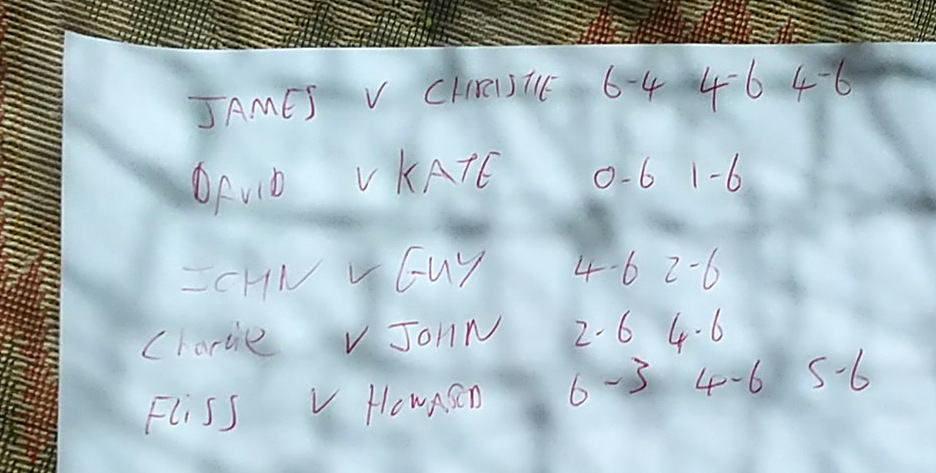 JAMES V CHRISTIE 6-4 4-6 4-6
DAVID V KATE 0-6 1-6
JOHN V GUY 4-6 2-6
Charlie V JOHN 2-6 4-6
FLiSS V HOWARD 6-3 4-6 5-6